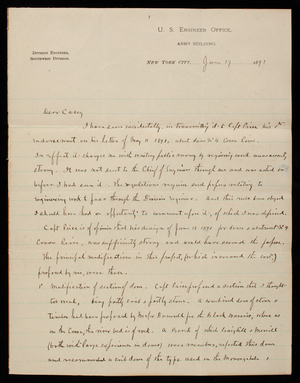 U. S. Engineer Office,
Army Building,
Division Engineer,
Southwest Division.
New York City, June 19 1891
Dear Casey
I have seen incidentally, in transmitting it to Capt Price his
indorsement on his letter of May 11 1891, about dam No 4 Coosa River.
In effect it charges me with wasting public money by requiring such unnecessary
strong. It was not sent to the Chief of Engineers through me and was acted on
before I had seen it. The regulations require such papers relating to
engineering work to pass through the Division Engineer. And this rule been obeyed
I should have had an opportunity to comment upon it, of which I was deprived.
Capt Price is of opinion that his design of June 13 1890 for dam & abutment No 4
Coosa River, was sufficiently strong and would have served the purpose.
The principal modifications in this project, (which increased the cost)
proposed by me, were these.
1º Modification of section of dam. Capt Price proposed a section that I thought
too weak, being partly and partly stone. A combined one of stone &
timber had been proposed by Major Barnwell for the Black Warrior, where as
in the Coosa, the river bed is of rock. A Board of which Craighill & Merrill
(both with large experience in dams) were members, rejected this dam
and recommended a solid dam of the type used in the Monongahela